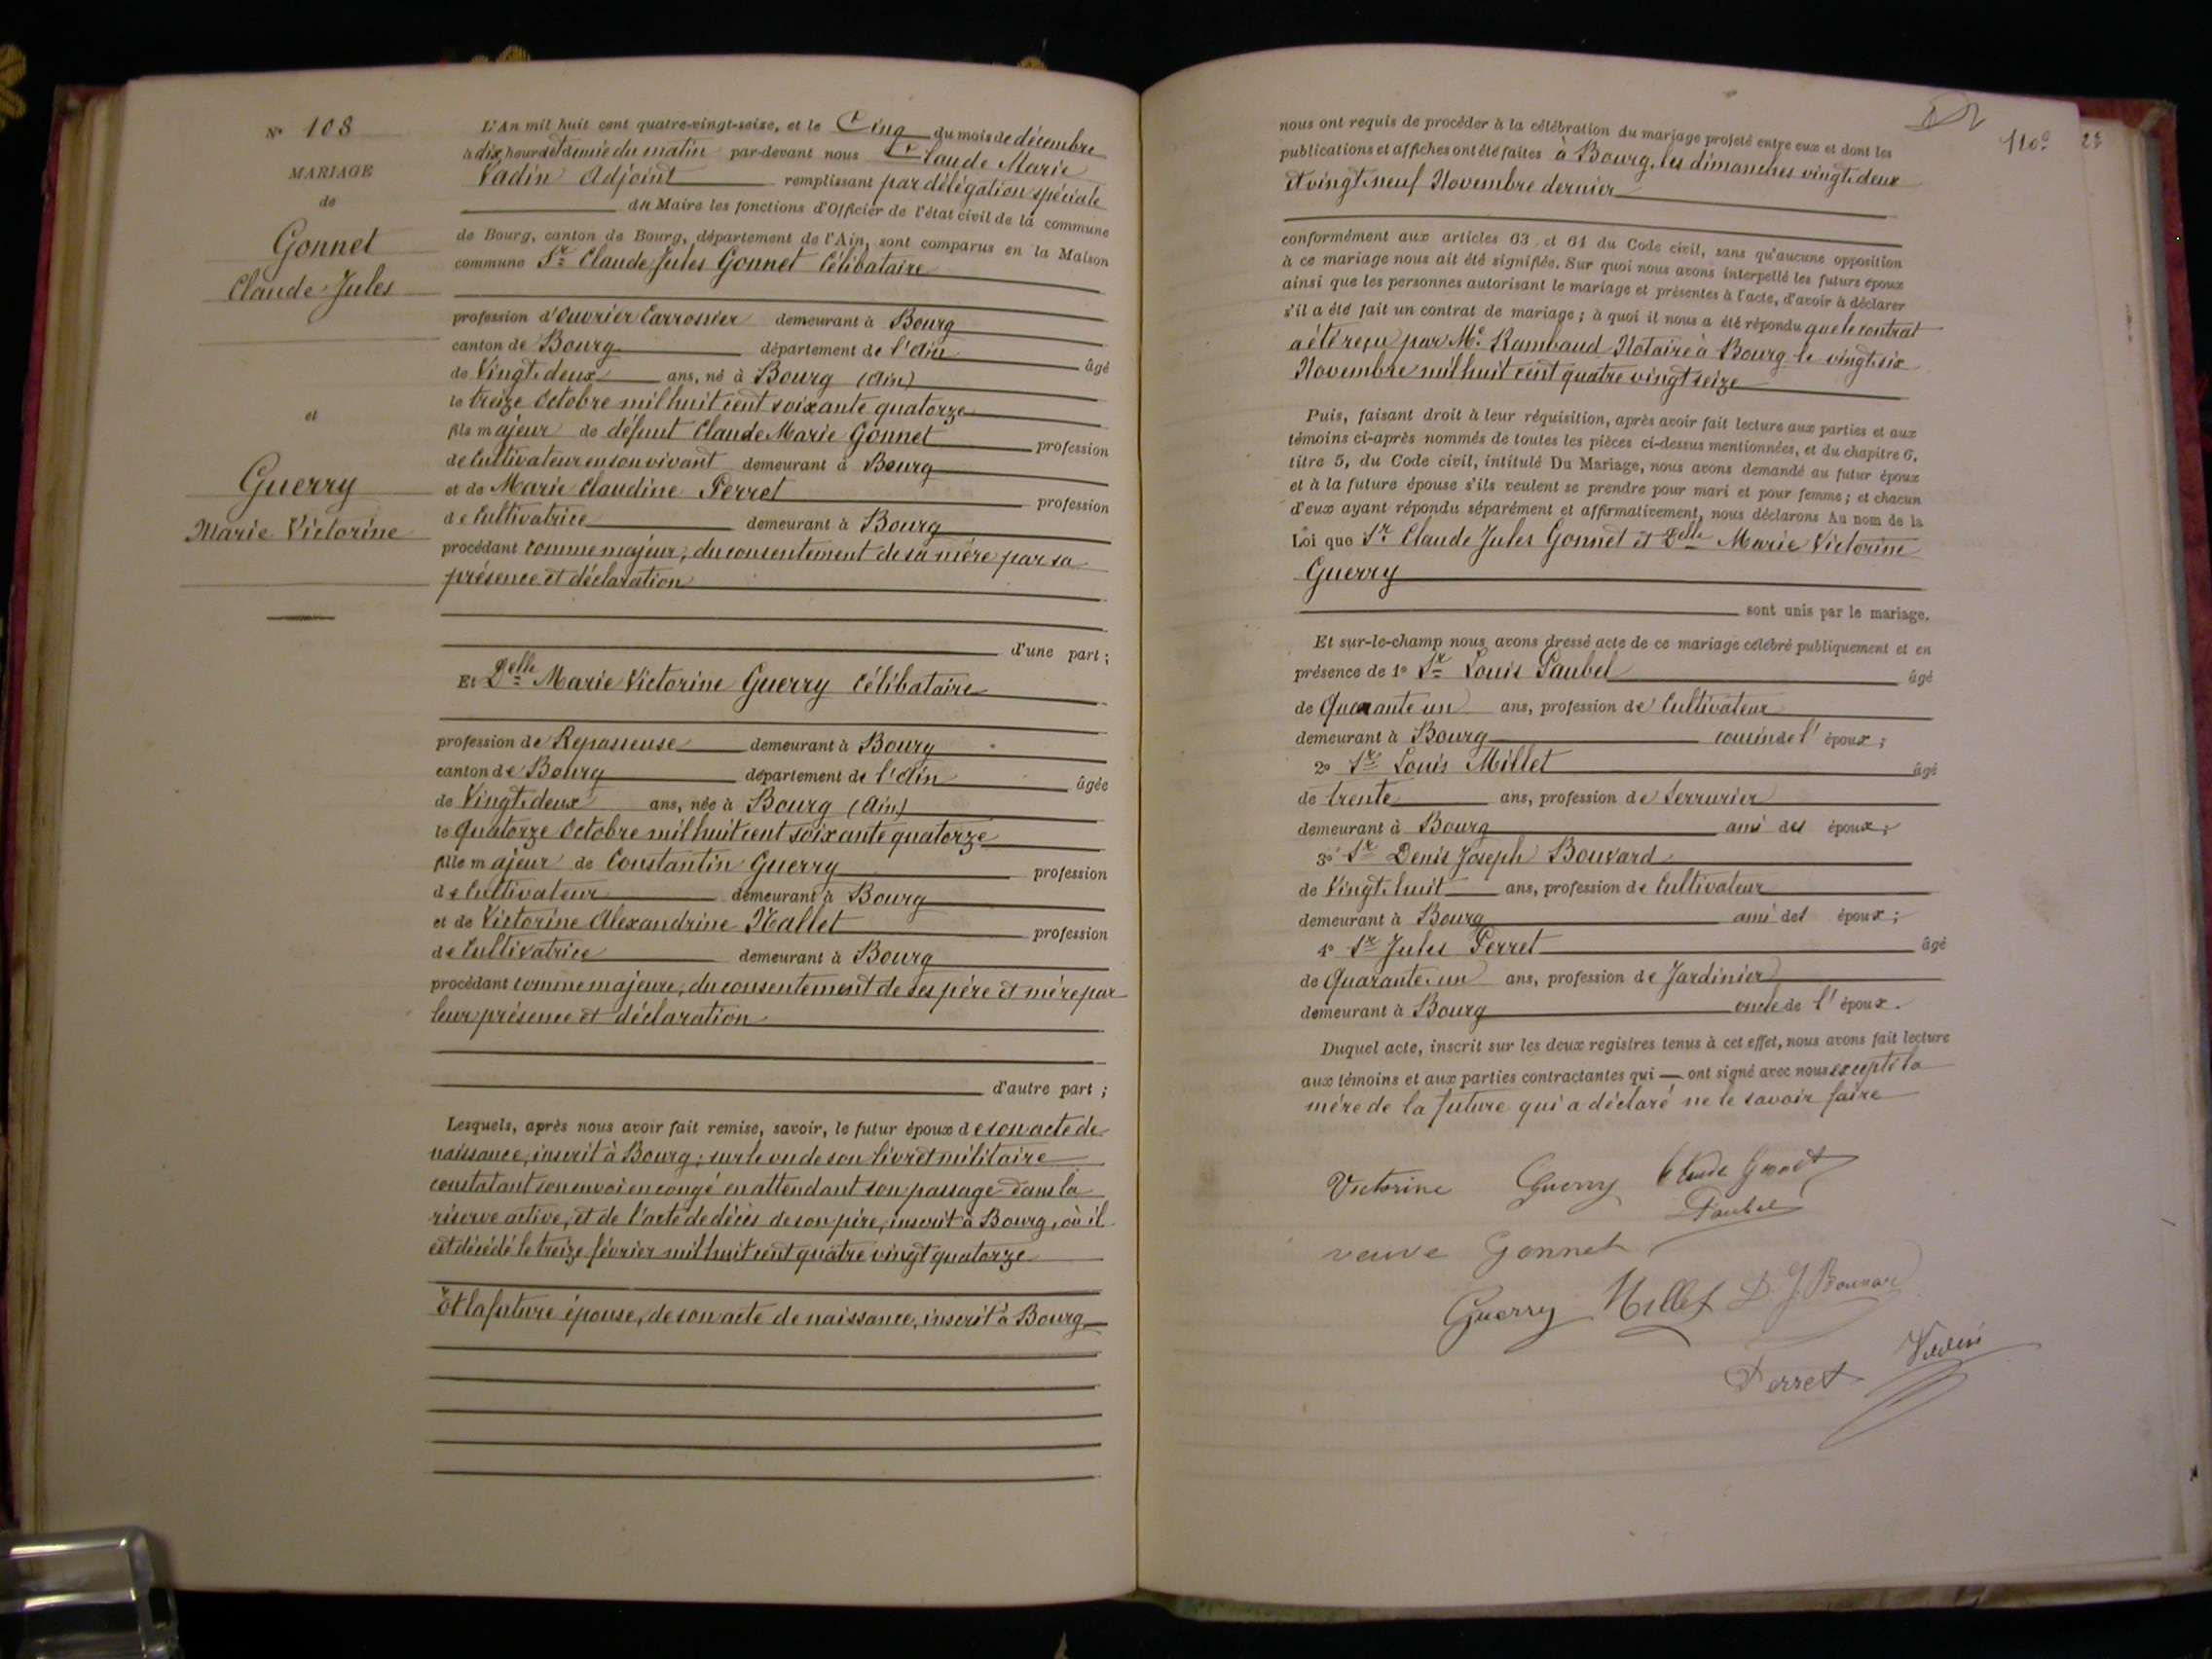 N° 108
MARIAGE
de
Gonnet
Claude Jules
et
Guerry
Marie Victorine
L'An mil huit cent quatre-vingt-seize, et le Cinq du mois de décembre
à dix heures et demie du matin par-devant nous Claude Marie
Vadin Adjoint remplissant par délégation spéciale
du Maire les fonctions d'Officier de l'état civil de la commune
de Bourg, canton de Bourg, département de l'Ain, sont comparus en la Maison
commune Sr Claude Jules Gonnet Célibataire
profession d'Ouvrier Carrossier demeurant à Bourg
canton de Bourg département de l'Ain âgé
de Vingt-deux ans, né à Bourg (Ain)
le treize Octobre mil huit cent soixante quatorze
fils majeur de défunt Claude Marie Gonnet profession
de Cultivateur en son vivant demeurant à Bourg
et de Marie Claudine Perret profession
de Cultivatrice demeurant à Bourg
procédant comme majeur, du consentement de sa mère par sa
présence et déclaration
d'une part ;
Et Delle Marie Victorine Guerry Célibataire
profession de Repasseuse demeurant à Bourg
canton de Bourg département de l'Ain âgée
de Vingt-deux ans, née à Bourg (Ain)
le Quatorze Octobre mil huit cent soixante quatorze
fille majeur de Constantin Guerry profession
de Cultivateur demeurant à Bourg
et de Victorine Alexandrine Nallet profession
de Cultivatrice demeurant à Bourg
procédant comme majeure, du consentement de ses père et mère par
leur présence et déclaration
d'autre part ;
Lesquels, après nous avoir fait remise, savoir, le futur époux de son acte de
naissance, inscrit à Bourg ; sur le vu de son livret militaire
constatant son envoi en congé en attendant son passage dans la
réserve active, et de l'acte de décès de son père, inscrit à Bourg, où il
est décédé le treize février mil huit cent quatre vingt quatorze
Et la future épouse, de son acte de naissance, inscrit à Bourg
110e 2e
nous ont requis de procéder à la célébration du mariage projeté entre eux et dont les
publications et affiches ont été faites à Bourg, les dimanches vingt-deux
et vingt-neuf Novembre dernier
conformément aux articles 63 et 64 du Code civil, sans qu'aucune opposition
à ce mariage nous ait été signifiée. Sur quoi nous avons interpellé les futurs époux
ainsi que les personnes autorisant le mariage et présentes à l'acte, d'avoir à déclarer
s'il a été fait un contrat de mariage ; à quoi il nous a été répondu que le contrat
a été reçu par Me Rambaud Notaire à Bourg le vingt-six
Novembre mil huit cent quatre vingt seize
Puis, faisant droit à leur réquisition, après avoir fait lecture aux parties et aux
témoins ci-après nommés de toutes les pièces ci-dessus mentionnées, et du chapitre 6,
titre 5, du Code civil, intitulé Du Mariage, nous avons demandé au futur époux
et à la future épouse s'ils veulent se prendre pour mari et pour femme ; et chacun
d'eux ayant répondu séparément et affirmativement, nous déclarons Au nom de la
Loi que Sr Claude Jules Gonnet et Delle Marie Victorine
Guerry
sont unis par le mariage.
Et sur-le-champ nous avons dressé acte de ce mariage célébré publiquement et en
présence de 1° Sr Louis Paubel âgé
de Quarante un ans, profession de Cultivateur
demeurant à Bourg cousin de l'époux ;
2° Sr Louis Millet âgé
de trente ans, profession de Serrurier
demeurant à Bourg ami des époux ;
3° Sr Denis Joseph Bouvard
de Vingt-huit ans, profession de Cultivateur
demeurant à Bourg ami des époux ;
4° Sr Jules Perret âgé
de Quarante-un ans, profession de Jardinier
demeurant à Bourg oncle de l'époux.
Duquel acte, inscrit sur les deux registres tenus à cet effet, nous avons fait lecture
aux témoins et aux parties contractantes qui ont signé avec nous excepté la
mère de la future qui a déclaré ne le savoir faire
Victorine Guerry Claude Gonnet
Paubel
veuve Gonnet
Guerry Millet D. J. Bouvard
Perret Vadin